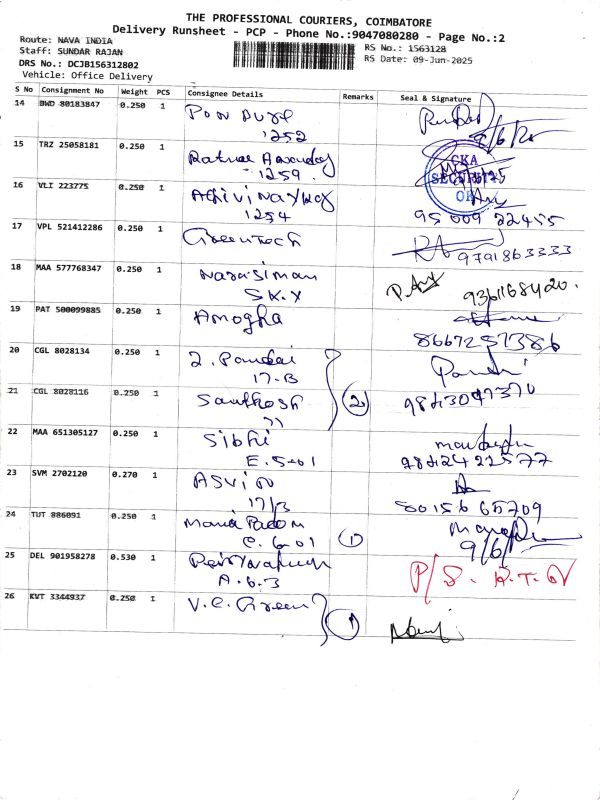 THE PROFESSIONAL COURIERS, COIMBATORE
Delivery Runsheet - PCP - Phone No.:9047080280 - Page No.:2
Route: NAVA INDIA
Staff: SUNDAR RAJAN
DRS No.: DCJB156312802
Vehicle: Office Delivery
RS No.: 1563128
RS Date: 09-Jun-2025
S No Consignment No Weight PCS Consignee Details Remarks Seal & Signature
14 BWD 80183847 0.250 1
1252
15 TRZ 25058181 0.250 1
1259
CKA
SECURITY
16 VLI 223775 0.250 1
1254
95009 22455
17 VPL 521412286 0.250 1 Greentech
9791863333
18 MAA 577768347 0.250 1 Narasiman
SK.X
9361168420
19 PAT 500099885 0.250 1 Amogha
8667257386
20 CGL 8028134 0.250 1 2. Pandai
17-B
21 CGL 8028116 0.250 1 Santhosh
77
2
9843047370
22 MAA 651305127 0.250 1 Sibhi
E.5-01
9842422577
23 SVM 2702120 0.270 1 ASVIN
17/B
8015665709
24 TUT 886091 0.250 1
C.6-01
1
9/6/
25 DEL 901958278 0.530 1
A.6.3
P/S. R.T.O
26 KVT 3344937 0.250 1 V.C. Green
1